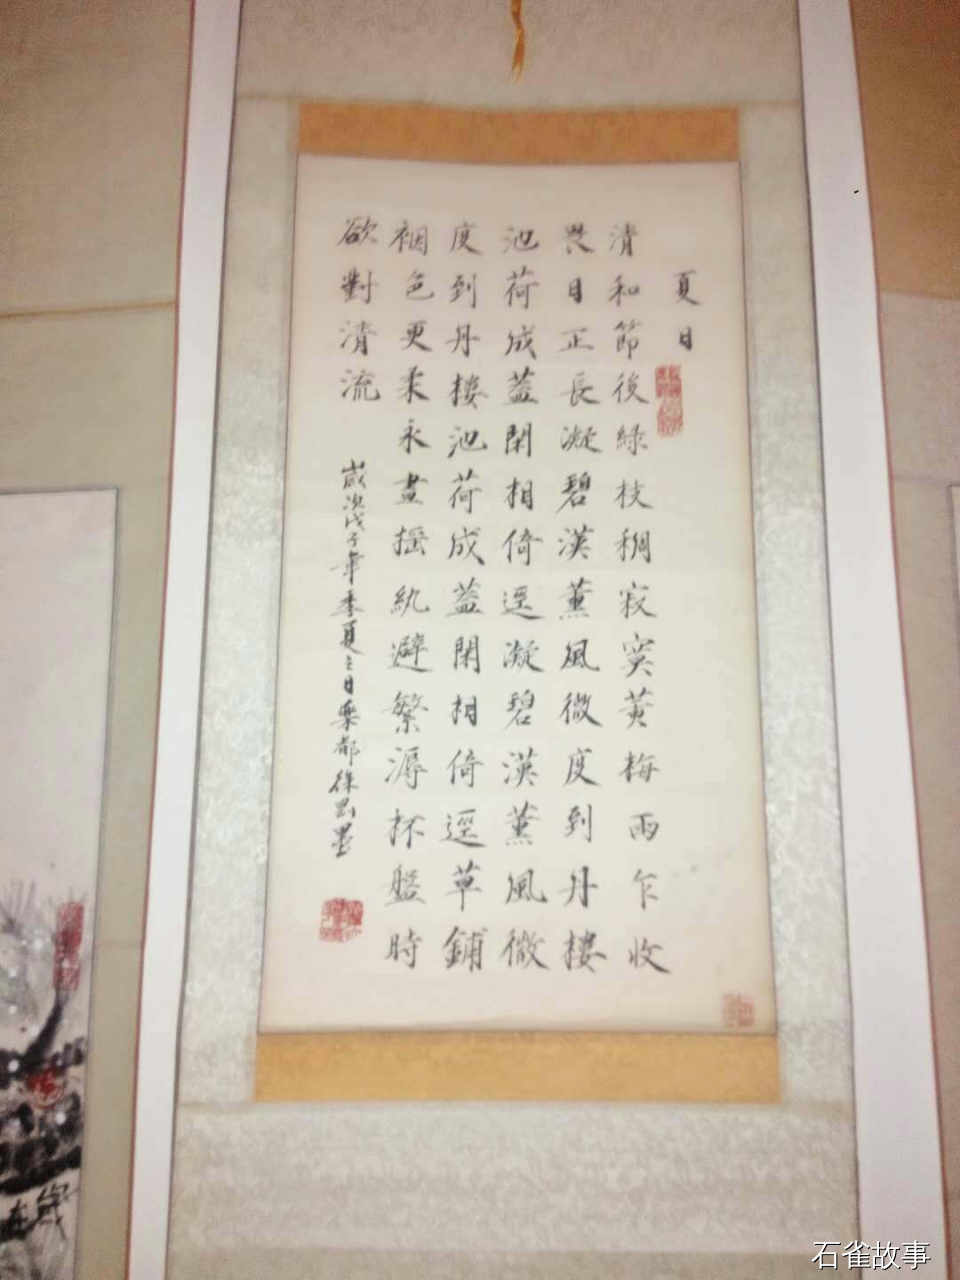 夏日
清和節後綠枝稠寂寞黄梅雨乍收
畏日正長凝碧漢薰風微度到丹樓
池荷成蓋閑相倚逕凝碧漢薰風微
度到丹樓池荷成蓋閑相倚逕草鋪
裀色更柔永晝摇紈避繁溽杯盤時
欲對清流
歲次戊子年季夏之日樂都徐墨
石雀故事